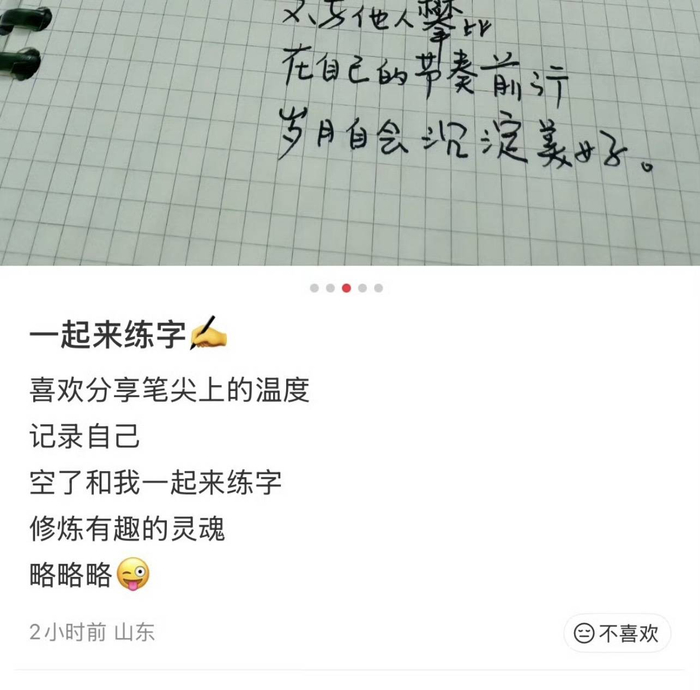 不与他人攀比
在自己的节奏前行
岁月自会沉淀美好。
一起来练字✍️
喜欢分享笔尖上的温度
记录自己
空了和我一起来练字
修炼有趣的灵魂
略略略😜
2小时前 山东
不喜欢